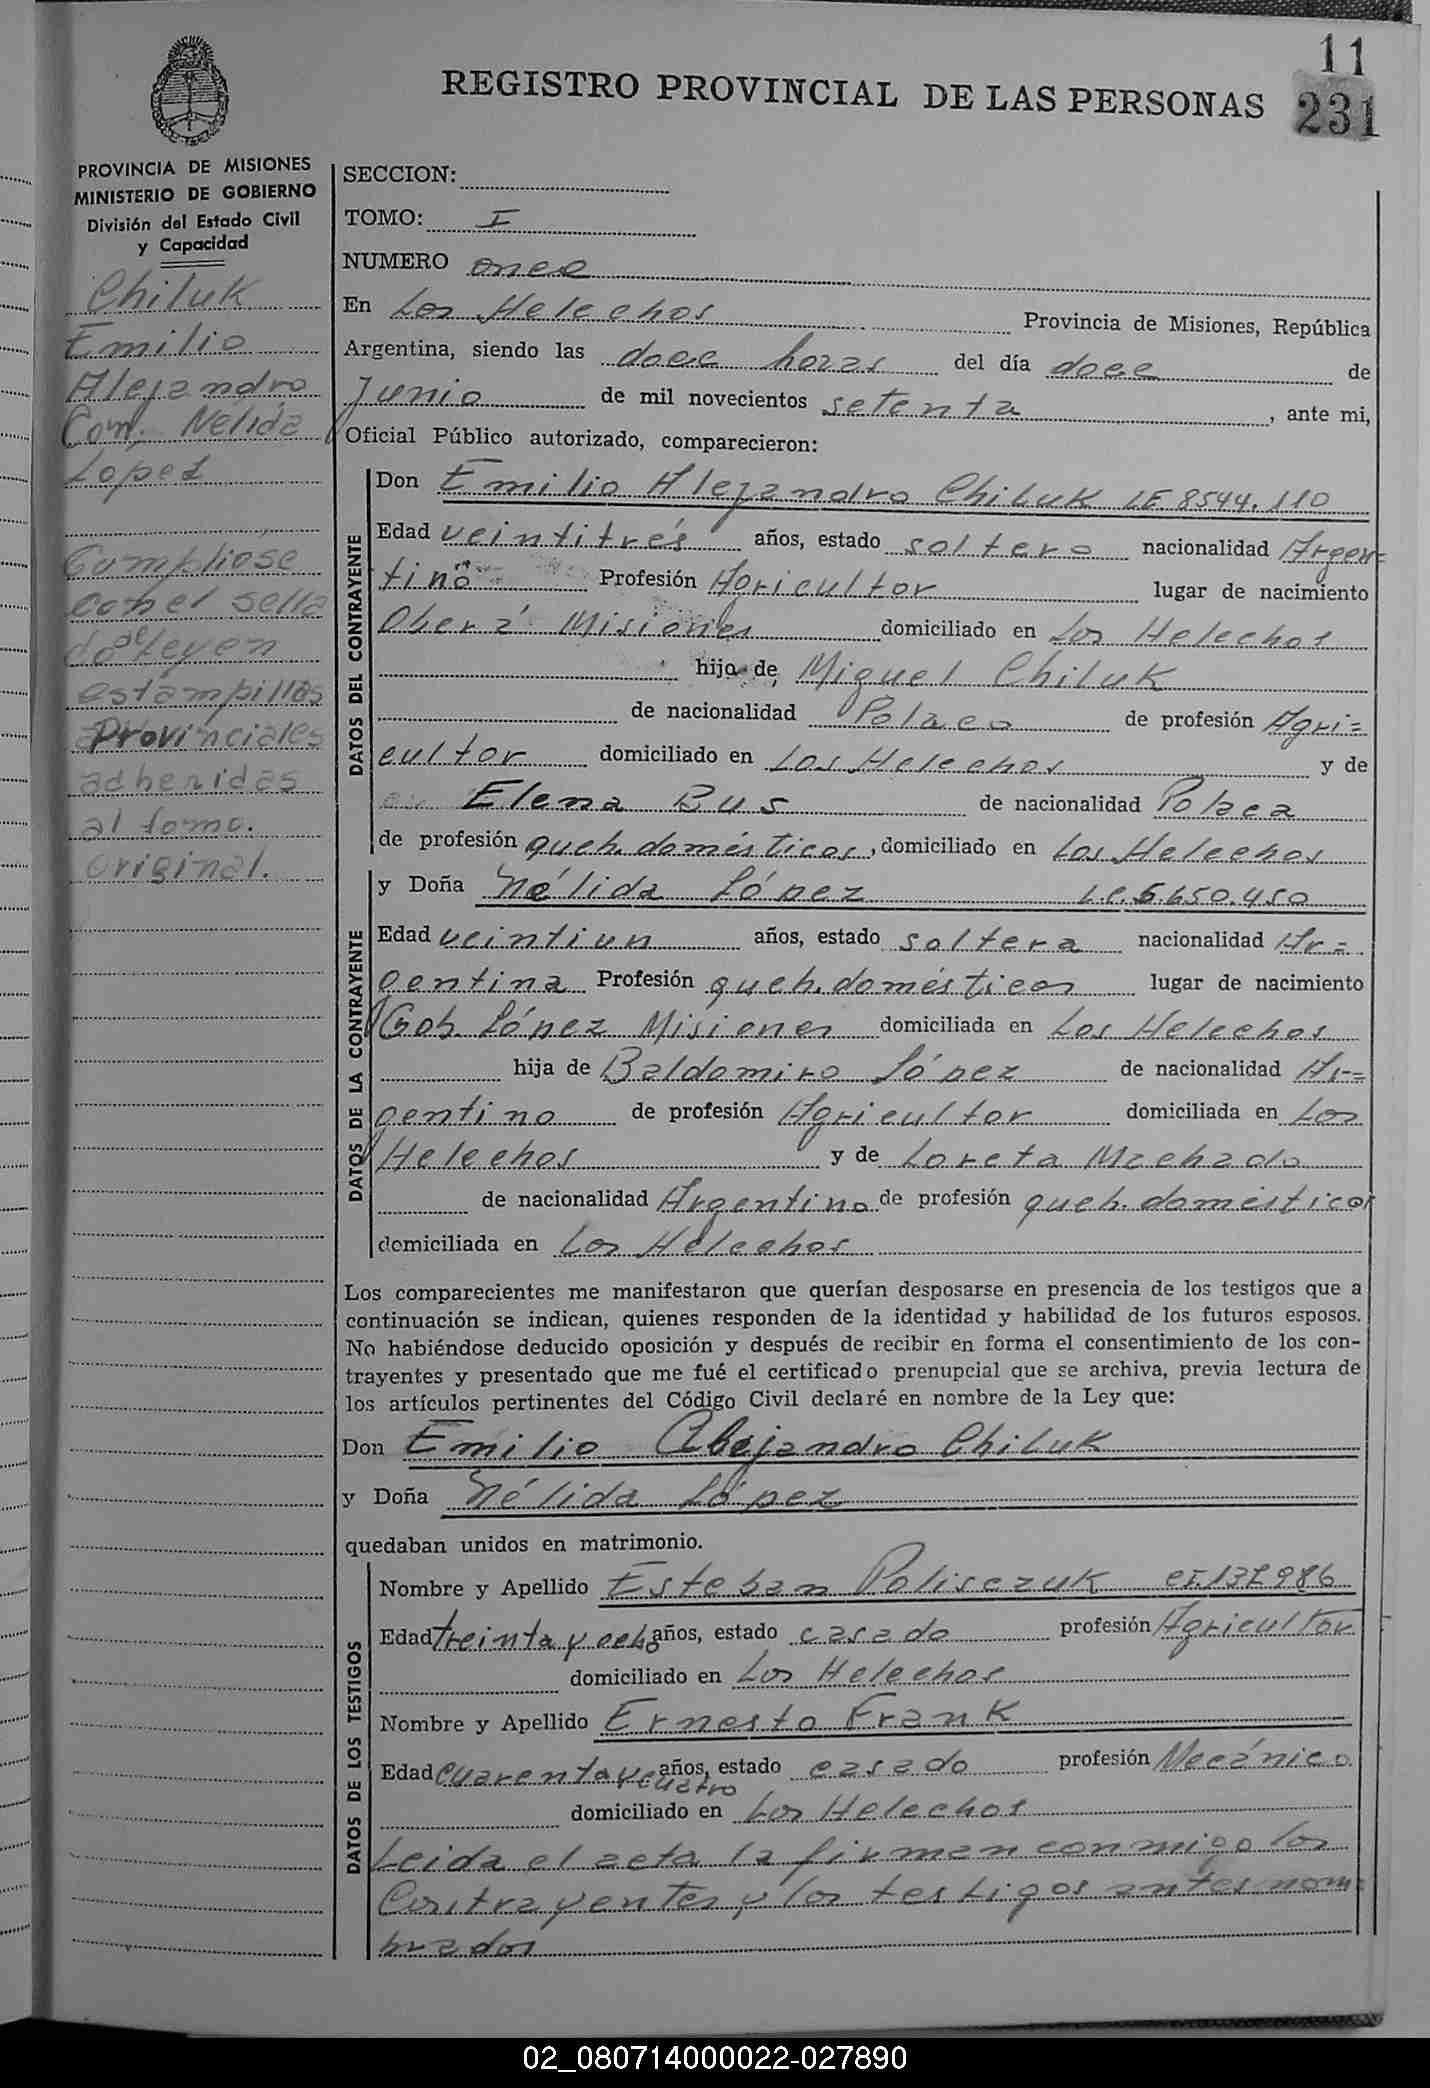 11
REGISTRO PROVINCIAL DE LAS PERSONAS
231
PROVINCIA DE MISIONES
MINISTERIO DE GOBIERNO
División del Estado Civil
y Capacidad
Chiluk
Emilio
Alejandro
Con. Nélida
Lopez
Cumpliose
con el sella
do de ley en
estampillas
Provinciales
adheridas
al tomo.
original.
SECCION:
TOMO: I
NUMERO once
En Los Helechos Provincia de Misiones, República
Argentina, siendo las doce horas del día doce de
Junio de mil novecientos setenta, ante mi,
Oficial Público autorizado, comparecieron:
DATOS DEL CONTRAYENTE
Don Emilio Alejandro Chiluk LE 8544.110
Edad veintitrés años, estado soltero nacionalidad Argen=
tino Profesión Agricultor lugar de nacimiento
Oberá Misiones domiciliado en Los Helechos
hijo de Miguel Chiluk
de nacionalidad Polaco de profesión Agri=
cultor domiciliado en Los Helechos y de
Elena Bus de nacionalidad Polaca
de profesión queh. domésticos, domiciliado en Los Helechos
DATOS DE LA CONTRAYENTE
y Doña Nélida López L.C. 6.650.450
Edad veintiun años, estado soltera nacionalidad Ar=
gentina Profesión queh. domésticos lugar de nacimiento
Gob. López Misiones domiciliada en Los Helechos
hija de Baldomiro López de nacionalidad Ar=
gentino de profesión Agricultor domiciliada en Los
Helechos y de Loreta Machado
de nacionalidad Argentina de profesión queh. domésticos
domiciliada en Los Helechos
Los comparecientes me manifestaron que querían desposarse en presencia de los testigos que a
continuación se indican, quienes responden de la identidad y habilidad de los futuros esposos.
No habiéndose deducido oposición y después de recibir en forma el consentimiento de los con-
trayentes y presentado que me fué el certificado prenupcial que se archiva, previa lectura de
los artículos pertinentes del Código Civil declaré en nombre de la Ley que:
Don Emilio Alejandro Chiluk
y Doña Nélida López
quedaban unidos en matrimonio.
DATOS DE LOS TESTIGOS
Nombre y Apellido Esteban Polisczuk CI.137986
Edad treinta y ocho años, estado casado profesión Agricultor
domiciliado en Los Helechos
Nombre y Apellido Ernesto Frank
Edad cuarenta y cuatro años, estado casado profesión Mecánico.
domiciliado en Los Helechos
Leida el acta la firman conmigo los
Contrayentes y los testigos antes nom=
brados
02_080714000022-027890